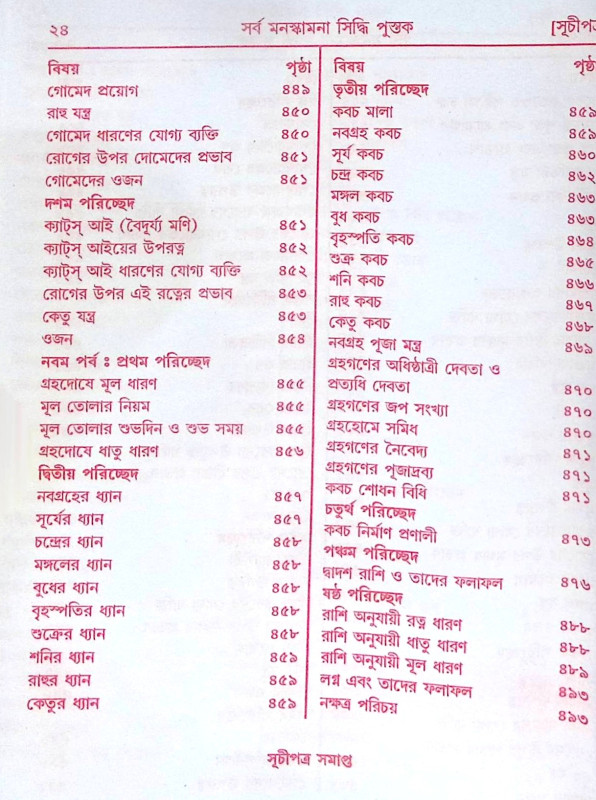 ২৪
সর্ব মনস্কামনা সিদ্ধি পুস্তক
[সূচীপত্র
বিষয় পৃষ্ঠা
গোমেদ প্রয়োগ ৪৪৯
রাহু যন্ত্র ৪৫০
গোমেদ ধারণের যোগ্য ব্যক্তি ৪৫০
রোগের উপর দোমেদের প্রভাব ৪৫১
গোমেদের ওজন ৪৫১
দশম পরিচ্ছেদ
ক্যাট্স্ আই (বৈদুর্য্য মণি) ৪৫১
ক্যাট্স্ আইয়ের উপরত্ন ৪৫২
ক্যাট্স্ আই ধারণের যোগ্য ব্যক্তি ৪৫২
রোগের উপর এই রত্নের প্রভাব ৪৫৩
কেতু যন্ত্র ৪৫৩
ওজন ৪৫৪
নবম পর্ব ঃ প্রথম পরিচ্ছেদ
গ্রহদোষে মূল ধারণ ৪৫৫
মূল তোলার নিয়ম ৪৫৫
মূল তোলার শুভদিন ও শুভ সময় ৪৫৫
গ্রহদোষে ধাতু ধারণ ৪৫৬
দ্বিতীয় পরিচ্ছেদ
নবগ্রহের ধ্যান ৪৫৭
সূর্যের ধ্যান ৪৫৭
চন্দ্রের ধ্যান ৪৫৮
মঙ্গলের ধ্যান ৪৫৮
বুধের ধ্যান ৪৫৮
বৃহস্পতির ধ্যান ৪৫৮
শুক্রের ধ্যান ৪৫৮
শনির ধ্যান ৪৫৯
রাহুর ধ্যান ৪৫৯
কেতুর ধ্যান ৪৫৯
বিষয় পৃষ্ঠ
তৃতীয় পরিচ্ছেদ
কবচ মালা ৪৫৯
নবগ্রহ কবচ ৪৫৯
সূর্য কবচ ৪৬০
চন্দ্র কবচ ৪৬২
মঙ্গল কবচ ৪৬৩
বুধ কবচ ৪৬৩
বৃহস্পতি কবচ ৪৬৪
শুক্র কবচ ৪৬৫
শনি কবচ ৪৬৬
রাহু কবচ ৪৬৭
কেতু কবচ ৪৬৮
নবগ্রহ পূজা মন্ত্র ৪৬৯
গ্রহগণের অধিষ্ঠাত্রী দেবতা ও
প্রত্যধি দেবতা ৪৭০
গ্রহগণের জপ সংখ্যা ৪৭০
গ্রহহোমে সমিধ ৪৭০
গ্রহগণের নৈবেদ্য ৪৭১
গ্রহগণের পূজাদ্রব্য ৪৭১
কবচ শোধন বিধি ৪৭১
চতুর্থ পরিচ্ছেদ
কবচ নির্মাণ প্রণালী ৪৭৩
পঞ্চম পরিচ্ছেদ
দ্বাদশ রাশি ও তাদের ফলাফল ৪৭৬
ষষ্ঠ পরিচ্ছেদ
রাশি অনুযায়ী রত্ন ধারণ ৪৮৮
রাশি অনুযায়ী ধাতু ধারণ ৪৮৮
রাশি অনুযায়ী মূল ধারণ ৪৮৯
লগ্ন এবং তাদের ফলাফল ৪৯৩
নক্ষত্র পরিচয় ৪৯৩
সূচীপত্র সমাপ্ত